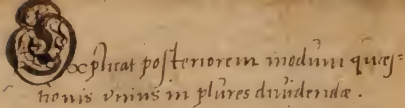 Explicat posteriorem modum quæs=
tionis vnius in plures diuidendæ.